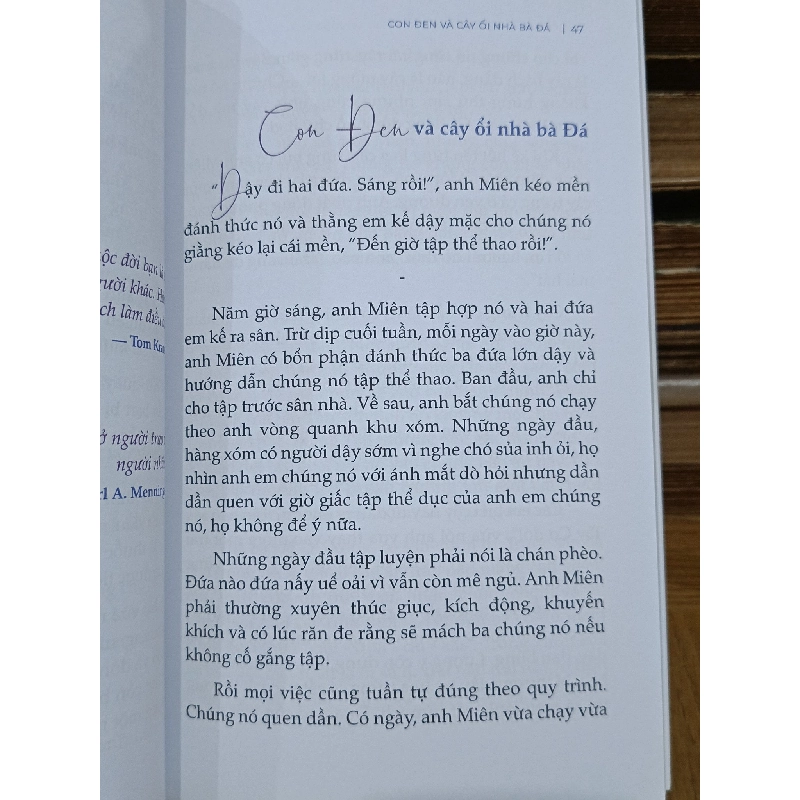 CON ĐEN VÀ CÂY ỔI NHÀ BÀ ĐÁ | 47
Con Đen và cây ổi nhà bà Đá
"Dậy đi hai đứa. Sáng rồi!", anh Miên kéo mền
đánh thức nó và thằng em kế dậy mặc cho chúng nó
giằng kéo lại cái mền, "Đến giờ tập thể thao rồi!".
-
Năm giờ sáng, anh Miên tập hợp nó và hai đứa
em kế ra sân. Trừ dịp cuối tuần, mỗi ngày vào giờ này,
anh Miên có bổn phận đánh thức ba đứa lớn dậy và
hướng dẫn chúng nó tập thể thao. Ban đầu, anh chỉ
cho tập trước sân nhà. Về sau, anh bắt chúng nó chạy
theo anh vòng quanh khu xóm. Những ngày đầu,
hàng xóm có người dậy sớm vì nghe chó sủa inh ỏi, họ
nhìn anh em chúng nó với ánh mắt dò hỏi nhưng dần
dần quen với giờ giấc tập thể dục của anh em chúng
nó, họ không để ý nữa.
Những ngày đầu tập luyện phải nói là chán phèo.
Đứa nào đứa nấy uể oải vì vẫn còn mê ngủ. Anh Miên
phải thường xuyên thúc giục, kích động, khuyến
khích và có lúc răn đe rằng sẽ mách ba chúng nó nếu
không cố gắng tập.
Rồi mọi việc cũng tuần tự đúng theo quy trình.
Chúng nó quen dần. Có ngày, anh Miên vừa chạy vừa
ộc đời bạn
rười khác.
ch làm
— Tom
ở người
người
rl A.